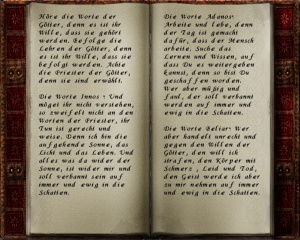 Höre die Worte der
Götter, denn es ist ihr
Wille, dass sie gehört
werden. Befolge die
Lehren der Götter, denn
es ist ihr Wille, dass sie
befolgt werden. Achte
die Priester der Götter,
denn sie sind erwählt.
Die Worte Innos: Und
möget ihr nicht verstehen,
so zweifelt nicht an den
Worten der Priester, ihr
Tun ist gerecht und
weise. Denn ich bin die
aufgehende Sonne, das
Licht und das Leben. Und
alles was da wider der
Sonne, ist wider mir und
soll verbannt sein auf
immer und ewig in die
Schatten.
Die Worte Adanos:
Arbeite und lebe, denn
der Tag ist gemacht
dafür, dass der Mensch
arbeite. Suche das
Lernen und Wissen, auf
dass Du es weitergeben
kannst, denn so bist Du
geschaffen worden.
Wer aber müßig und
faul, der soll verbannt
werden auf immer und
ewig in die Schatten.
Die Worte Beliar: Wer
aber handelt unrecht und
gegen den Willen der
Götter, den will ich
strafen, den Körper mit
Schmerz, Leid und Tod,
den Geist werde ich aber
zu mir nehmen auf immer
und ewig in die Schatten.